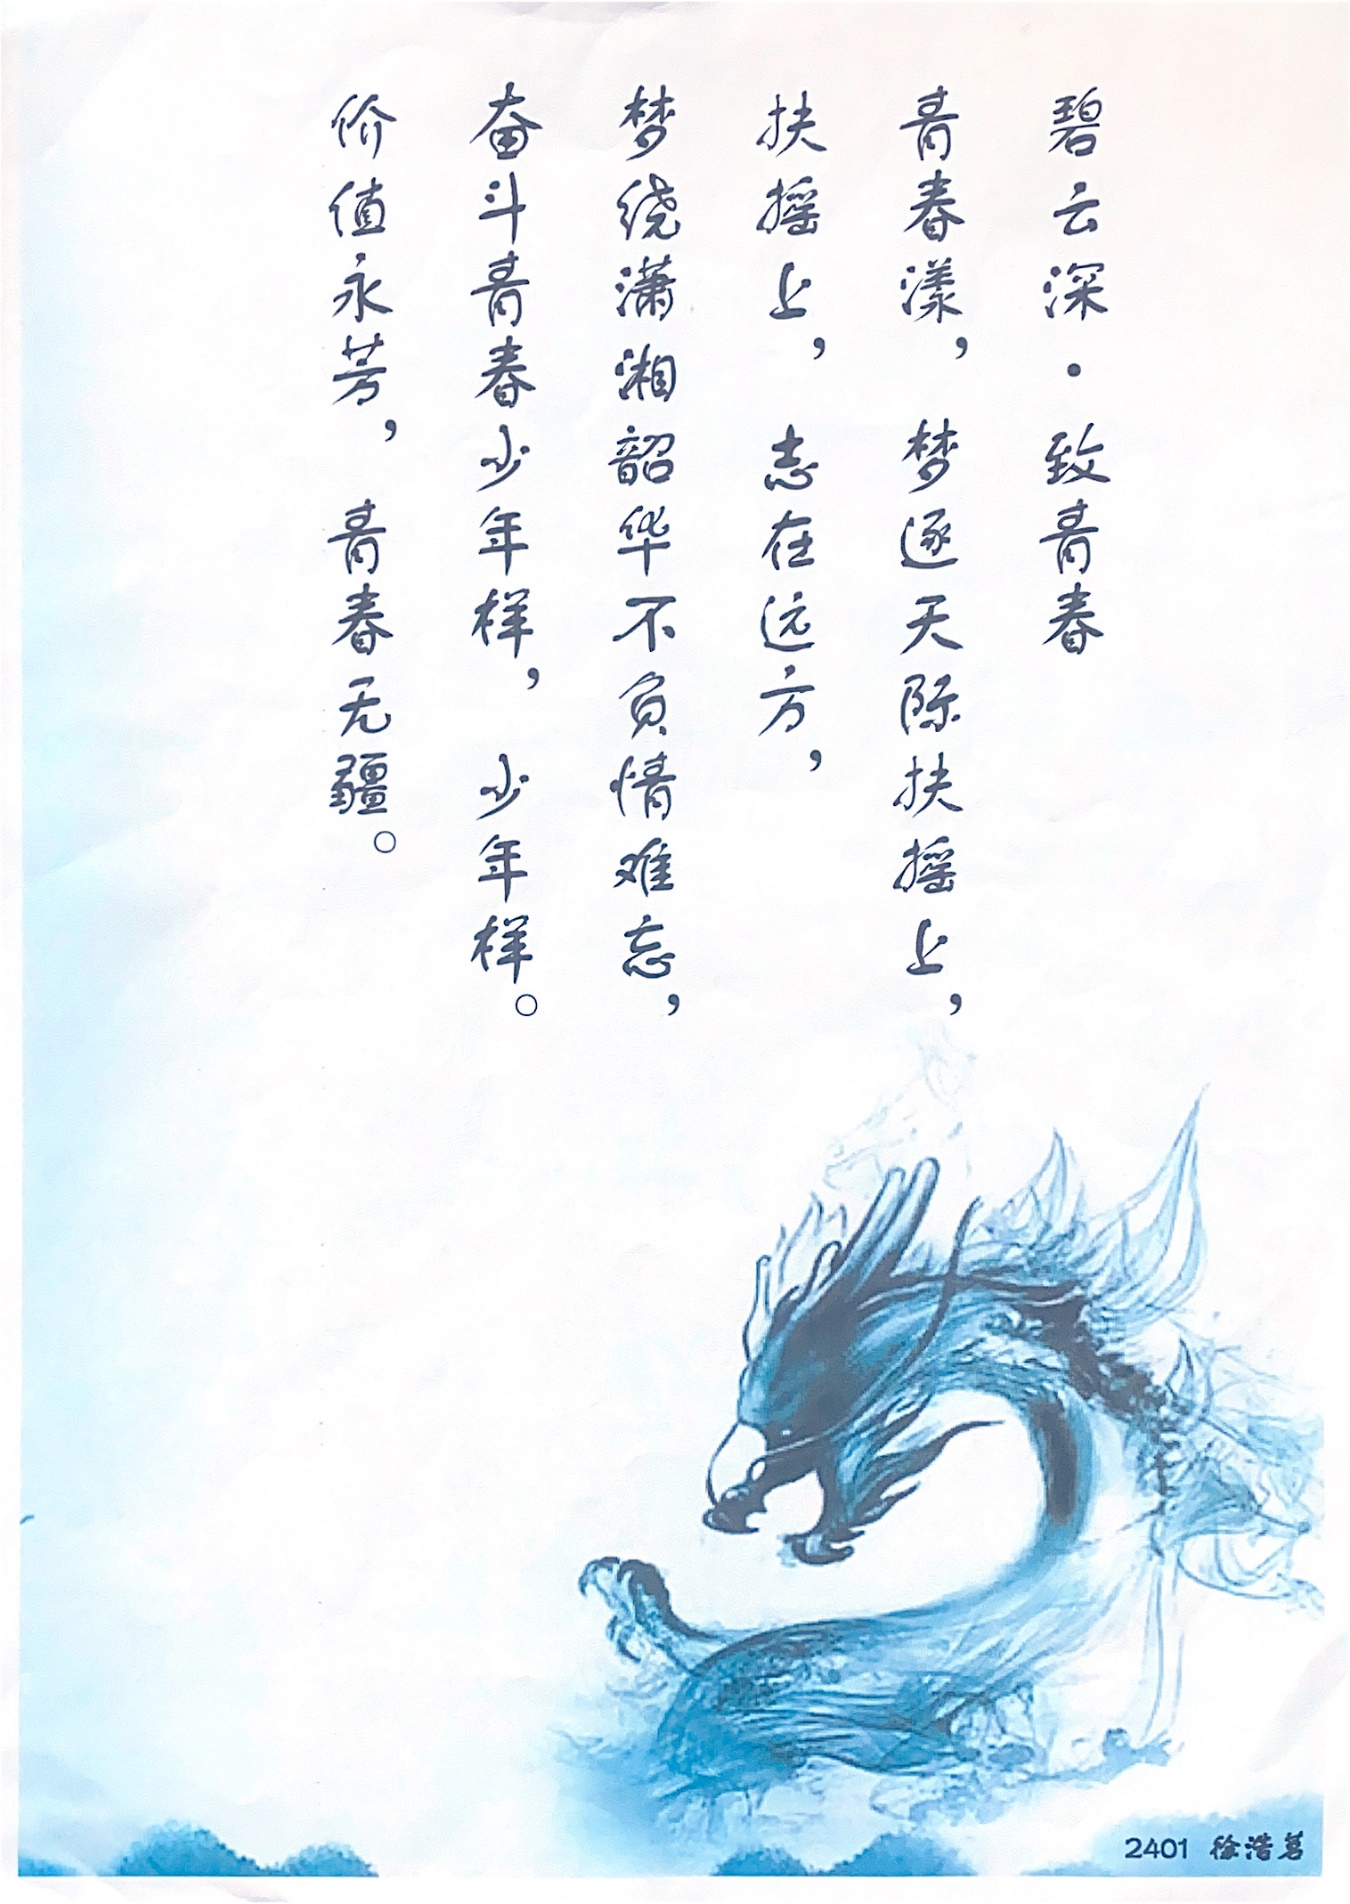 碧云深·致青春
青春漾，梦逐天际扶摇上，
扶摇上，志在远方，
梦绕潇湘韶华不负情难忘，
奋斗青春少年样，少年样。
价值永芳，青春无疆。
2401 徐浩茗